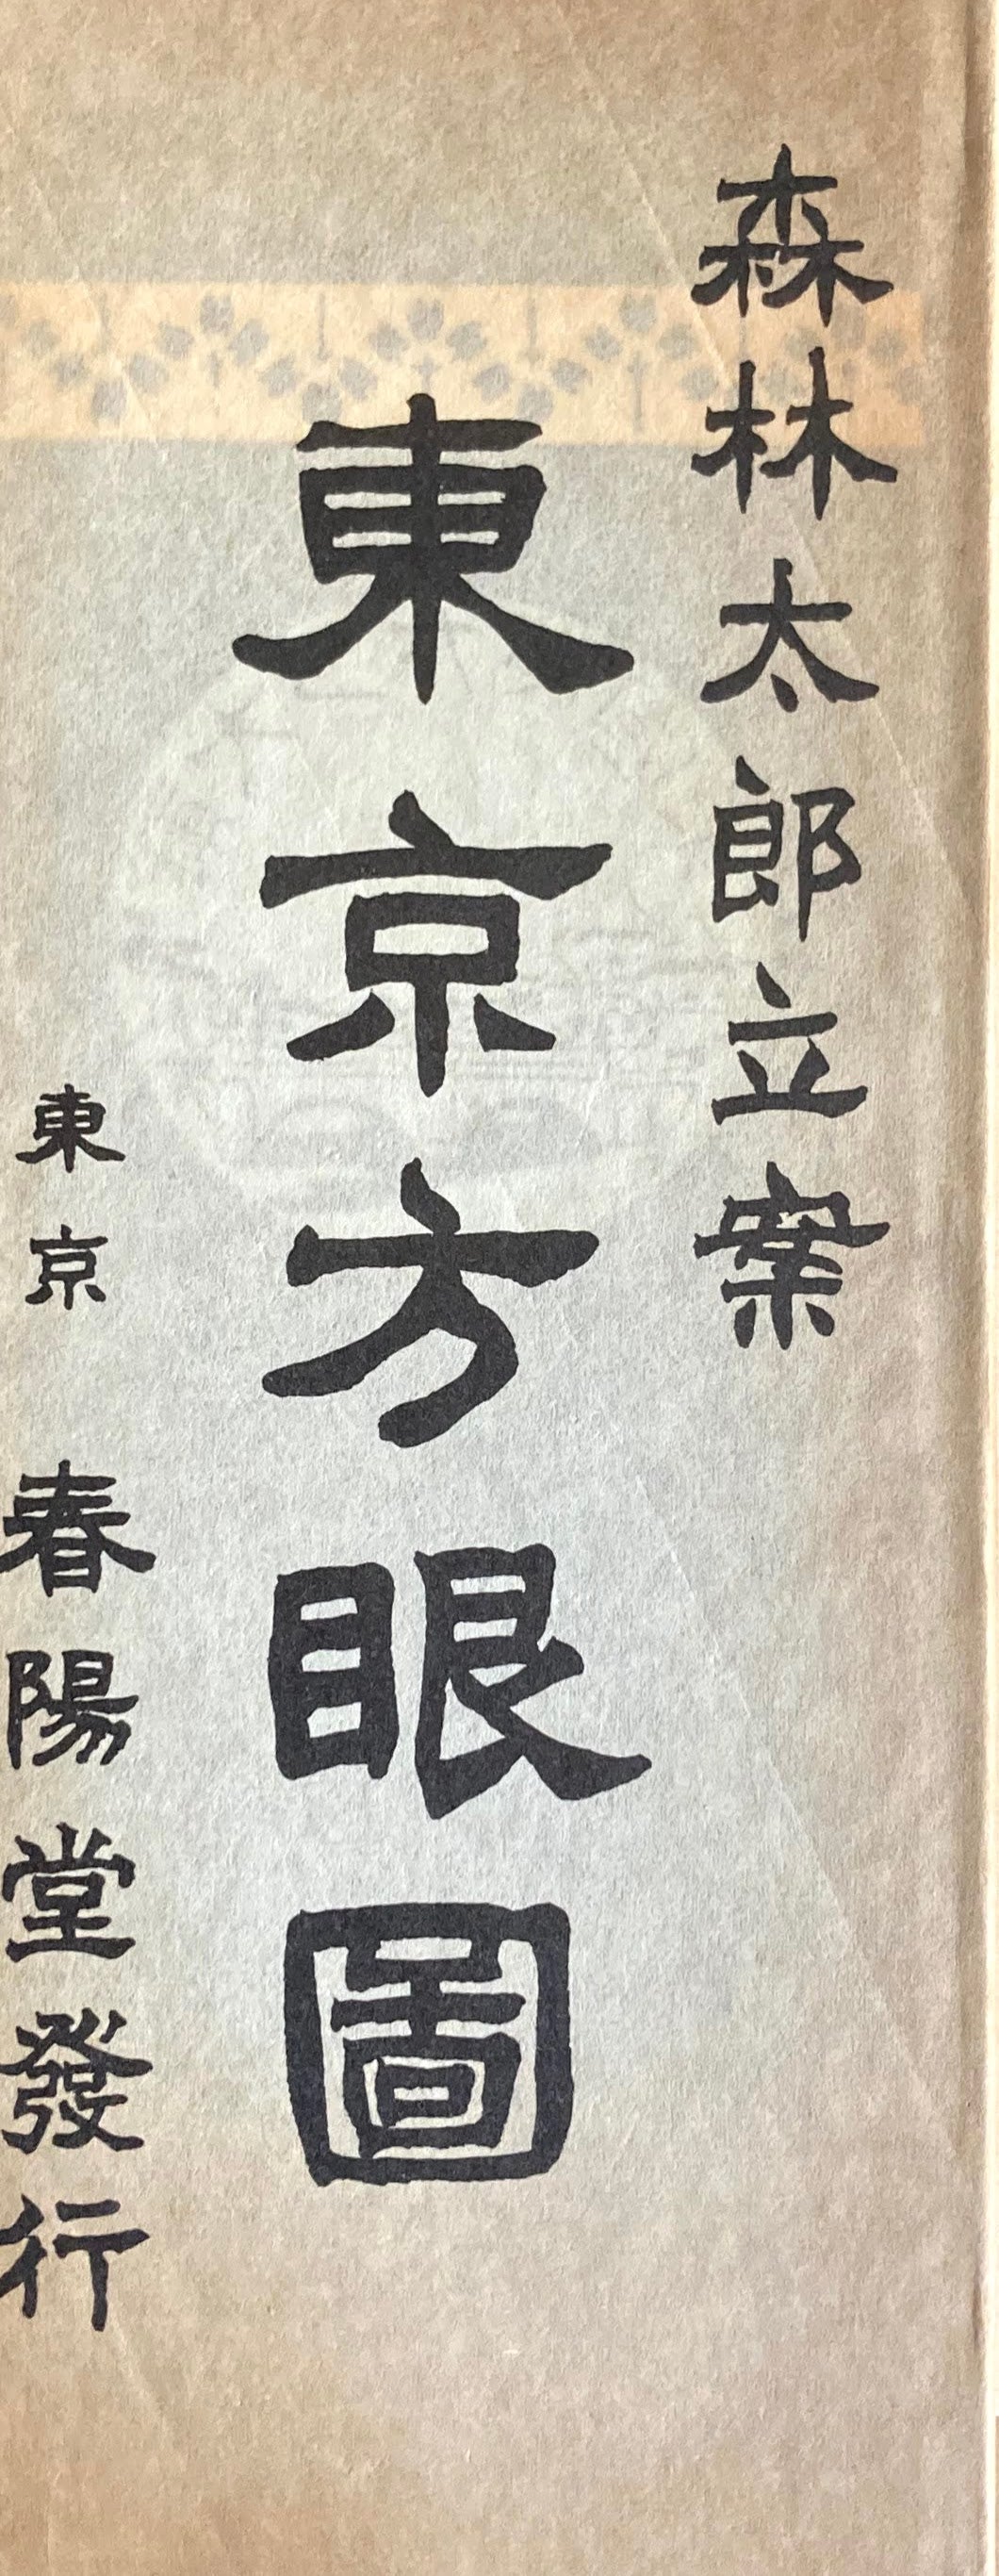 森林太郎立案
東京方眼圖
東京 春陽堂發行